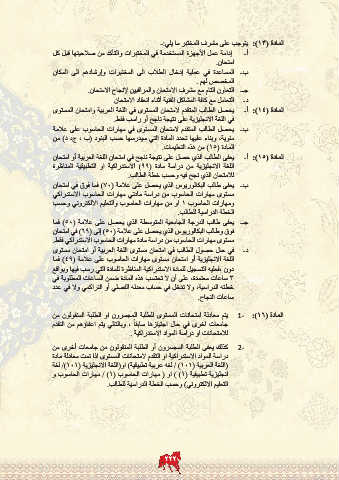 المادة (١٣): يتوجب على مشرف المختبر ما يلي:-
أ- إدامة عمل الأجهزة المستخدمة في المختبرات والتأكد من صلاحيتها قبل كل
امتحان.
ب- المساعدة في عملية إدخال الطلاب الى المختبرات وإرشادهم الى المكان
المخصص لهم.
جـ- التعاون التام مع مشرف الامتحان والمراقبين لإنجاح الامتحان.
د- التعامل مع كافة المشاكل الفنية أثناء انعقاد الامتحان.
المادة (١٤): أ- يحصل الطالب المتقدم لامتحان المستوى في اللغة العربية وامتحان المستوى
في اللغة الانجليزية على نتيجة ناجح أو راسب فقط.
ب- يحصل الطالب المتقدم لامتحان المستوى في مهارات الحاسوب على علامة
مئوية، وبناء عليها تحدد المادة التي سيدرسها حسب البنود (ب ، ج، د) من
المادة (١٥) من هذه التعليمات.
المادة (١٥): أ- يعفى الطالب الذي حصل على نتيجة ناجح في امتحان اللغة العربية أو امتحان
اللغة الانجليزية من دراسة مادة (٩٩) الاستدراكية او التطبيقية المناظرة
للامتحان الذي نجح فيه وحسب خطة الطالب.
ب- يعفى طالب البكالوريوس الذي يحصل على علامة (٧٠) فما فوق في امتحان
مستوى مهارات الحاسوب من دراسة مادتي مهارات الحاسوب الاستدراكي
ومهارات الحاسوب ١ او من مهارات الحاسوب والتعليم الالكتروني وحسب
الخطة الدراسية للطالب.
جـ- يعفى طالب الدرجة الجامعية المتوسطة الذي يحصل على علامة (٥٠) فما
فوق وطالب البكالوريوس الذي يحصل على علامة (٥٠) إلى (٦٩) في امتحان
مستوى مهارات الحاسوب من دراسة مادة مهارات الحاسوب الاستدراكي فقط.
د- في حال حصول الطالب في امتحان مستوى اللغة العربية أو امتحان مستوى
اللغة الانجليزية أو امتحان مستوى مهارات الحاسوب على علامة (٤٩) فما
دون فعليه التسجيل للمادة الاستدراكية المناظرة للمادة التي رسب فيها وبواقع
٣ ساعات معتمدة، على أن لا تحتسب هذه المادة ضمن الساعات المطلوبة في
خطته الدراسية، ولا تدخل في حساب معدله الفصلي أو التراكمي ولا في عدد
ساعات النجاح.
المادة (١٦): 1- يتم معادلة امتحانات المستوى للطلبة المجسرون او الطلبة المنقولون من
جامعات اخرى في حال اجتيازها سابقاً ، وبالتالي يتم اعفاؤهم من التقدم
للامتحانات أو دراسة المواد الاستدراكية.
2- كذلك يعفى الطلبة المجسرون أو الطلبة المنقولون من جامعات أخرى من
دراسة المواد الاستدراكية او التقدم لامتحانات المستوى اذا تمت معادلة مادة
(اللغة العربية (١٠١) / لغة عربية تطبيقية) او(اللغة الانجليزية (١٠١)/ لغة
انجليزية تطبيقية (١) ) او ( مهارات الحاسوب (١) / مهارات الحاسوب و
التعليم الالكتروني) وحسب الخطة الدراسية للطالب.